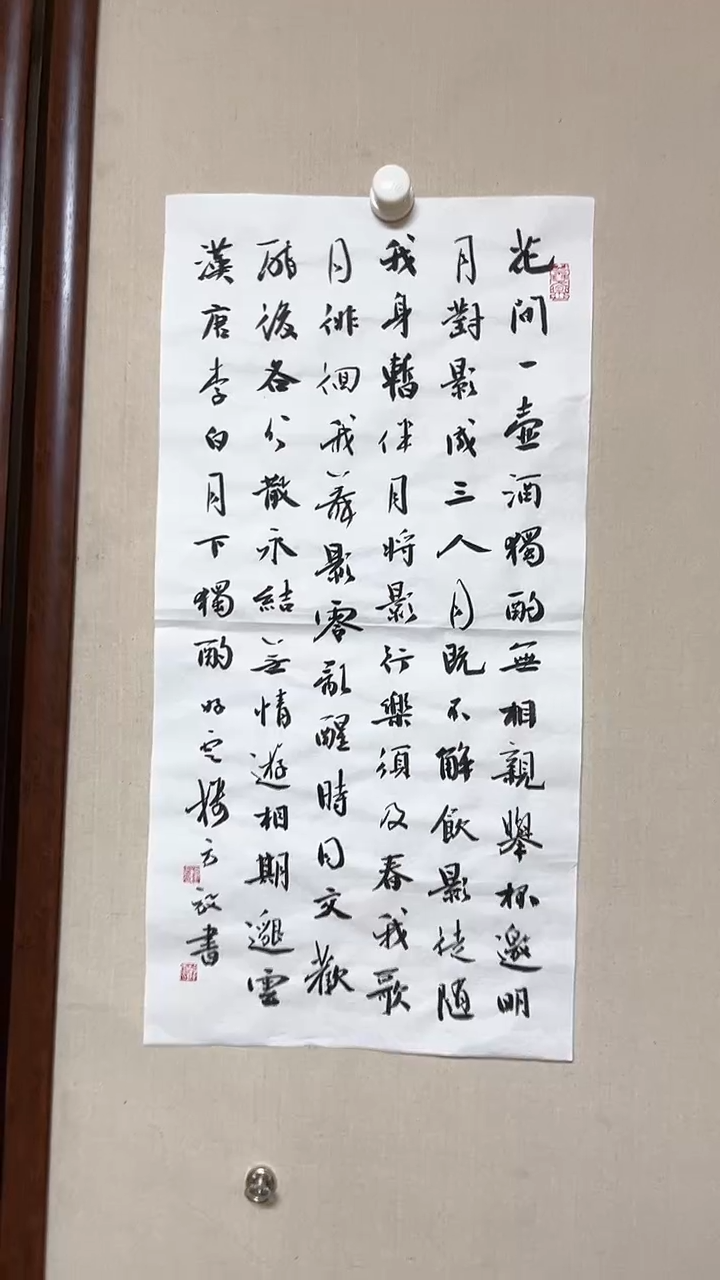 花間一壺酒獨酌無相親舉杯邀明
月對影成三人月既不解飲影徒随
我身暫伴月將影行樂須及春我歌
月徘徊我舞影零亂醒時同交歡
醉後各分散永結無情遊相期邈雲
漢唐李白月下獨酌書